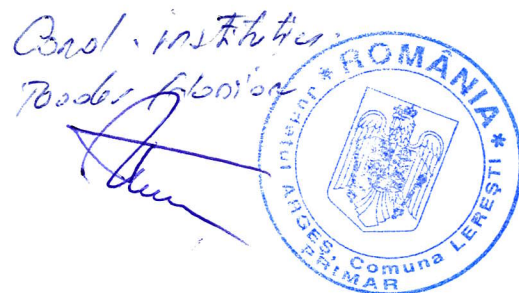 Cond. instituției
Toader
* ROMÂNIA *
Județul ARGEȘ, Comuna LEREȘTI
PRIMAR